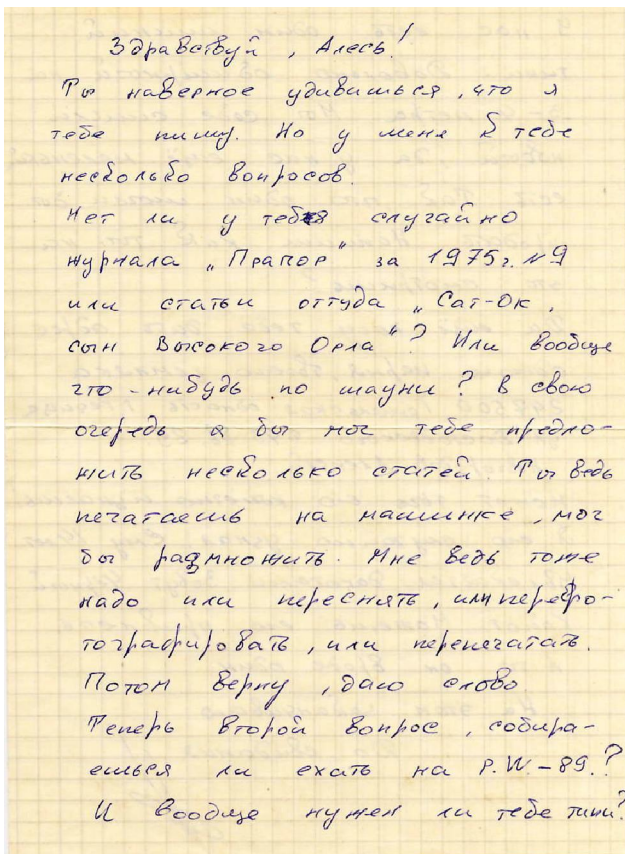 Здравствуй, Алесь!
Ты наверное удивишься, что я
тебе пишу. Но у меня к тебе
несколько вопросов.
Нет ли у тебя случайно
журнала „Прапор" за 1975г. №9
или статьи оттуда „Сат-Ок,
сын Высокого Орла"? Или вообще
что-нибудь по шауни? В свою
очередь я бы мог тебе предло-
жить несколько статей. Ты ведь
печатаешь на машинке, мог
бы размножить. Мне ведь тоже
надо или переснять, или перефо-
тографировать, или перепечатать.
Потом верну, даю слово
Теперь второй вопрос, собира-
ешься ли ехать на P.W.-89.?
И вообще нужен ли тебе типи?